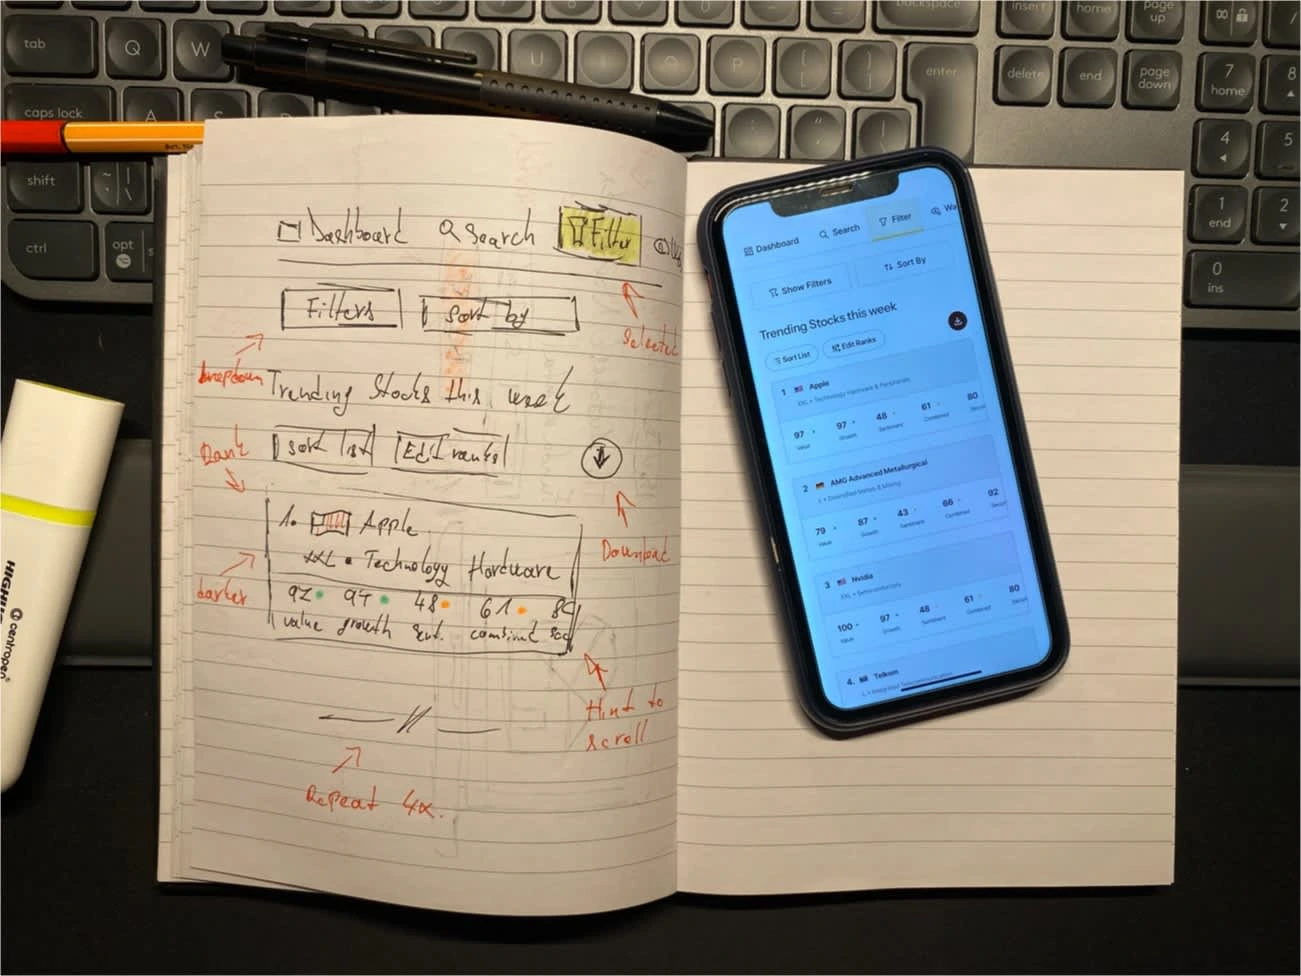 backspace
insert
home
page up
tab
Q
W
U
I
O
P
enter
delete
end
page down
7 home
8
caps lock
A
S
D
4
5
shift
ctrl
opt
s
1 end
2
0 ins
Dashboard Search Filter
Filters Sort by
Selected
Dropdown
Trending Stocks this week
Rank
Sort list Edit ranks
Download
1. Apple
XXL • Technology Hardware
darker
97 48 61
value growth Sent. combined
Hint to scroll
Repeat 4x.
centropen
Dashboard Search Filter Wa
Show Filters Sort By
Trending Stocks this week
Sort List Edit Ranks
1 Apple
XXL • Technology Hardware & Peripherals
97 97 48 61 80
Value Growth Sentiment Combined Secur
2 AMG Advanced Metallurgical
L • Diversified Metals & Mining
79 87 43 66 92
Value Growth Sentiment Combined Secur
3 Nvidia
XXL • Semiconductors
100 97 48 61 80
Value Growth Sentiment Combined Secur
4. Telkom
L • Integrated Telecommunication